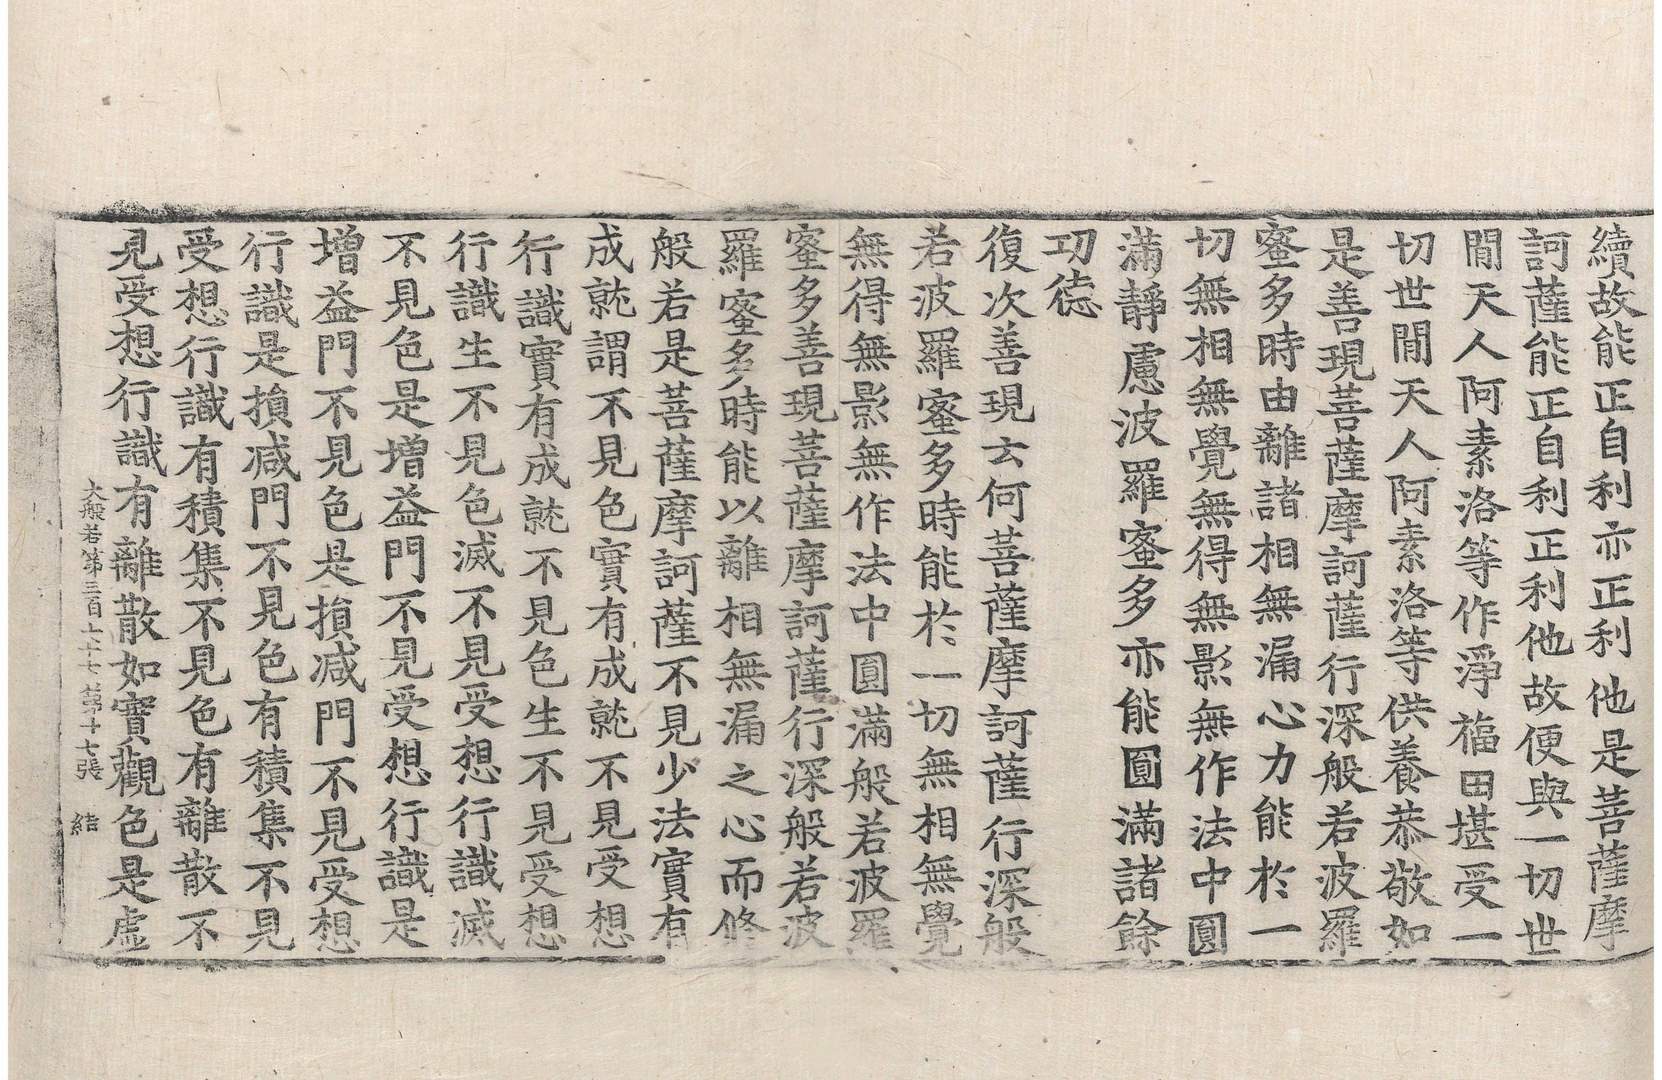 續故能正自利亦正利他是菩薩摩
訶薩能正自利正利他故便與一切世
間天人阿素洛等作淨福田堪受一
切世間天人阿素洛等供養恭敬如
是善現菩薩摩訶薩行深般若波羅
蜜多時由離諸相無漏心力能於一
切無相無覺無得無影無作法中圓
滿靜慮波羅蜜多亦能圓滿諸餘
功德
復次善現云何菩薩摩訶薩行深般
若波羅蜜多時能於一切無相無覺
無得無影無作法中圓滿般若波羅
蜜多善現菩薩摩訶薩行深般若波
羅蜜多時能以離相無漏之心而修
般若是菩薩摩訶薩不見少法實有
成就謂不見色實有成就不見受想
行識實有成就不見色生不見受想
行識生不見色滅不見受想行識滅
不見色是增益門不見受想行識是
增益門不見色是損減門不見受想
行識是損減門不見色有積集不見
受想行識有積集不見色有離散不
見受想行識有離散如實觀色是虛
大般若第三百六十七 第十七張 結